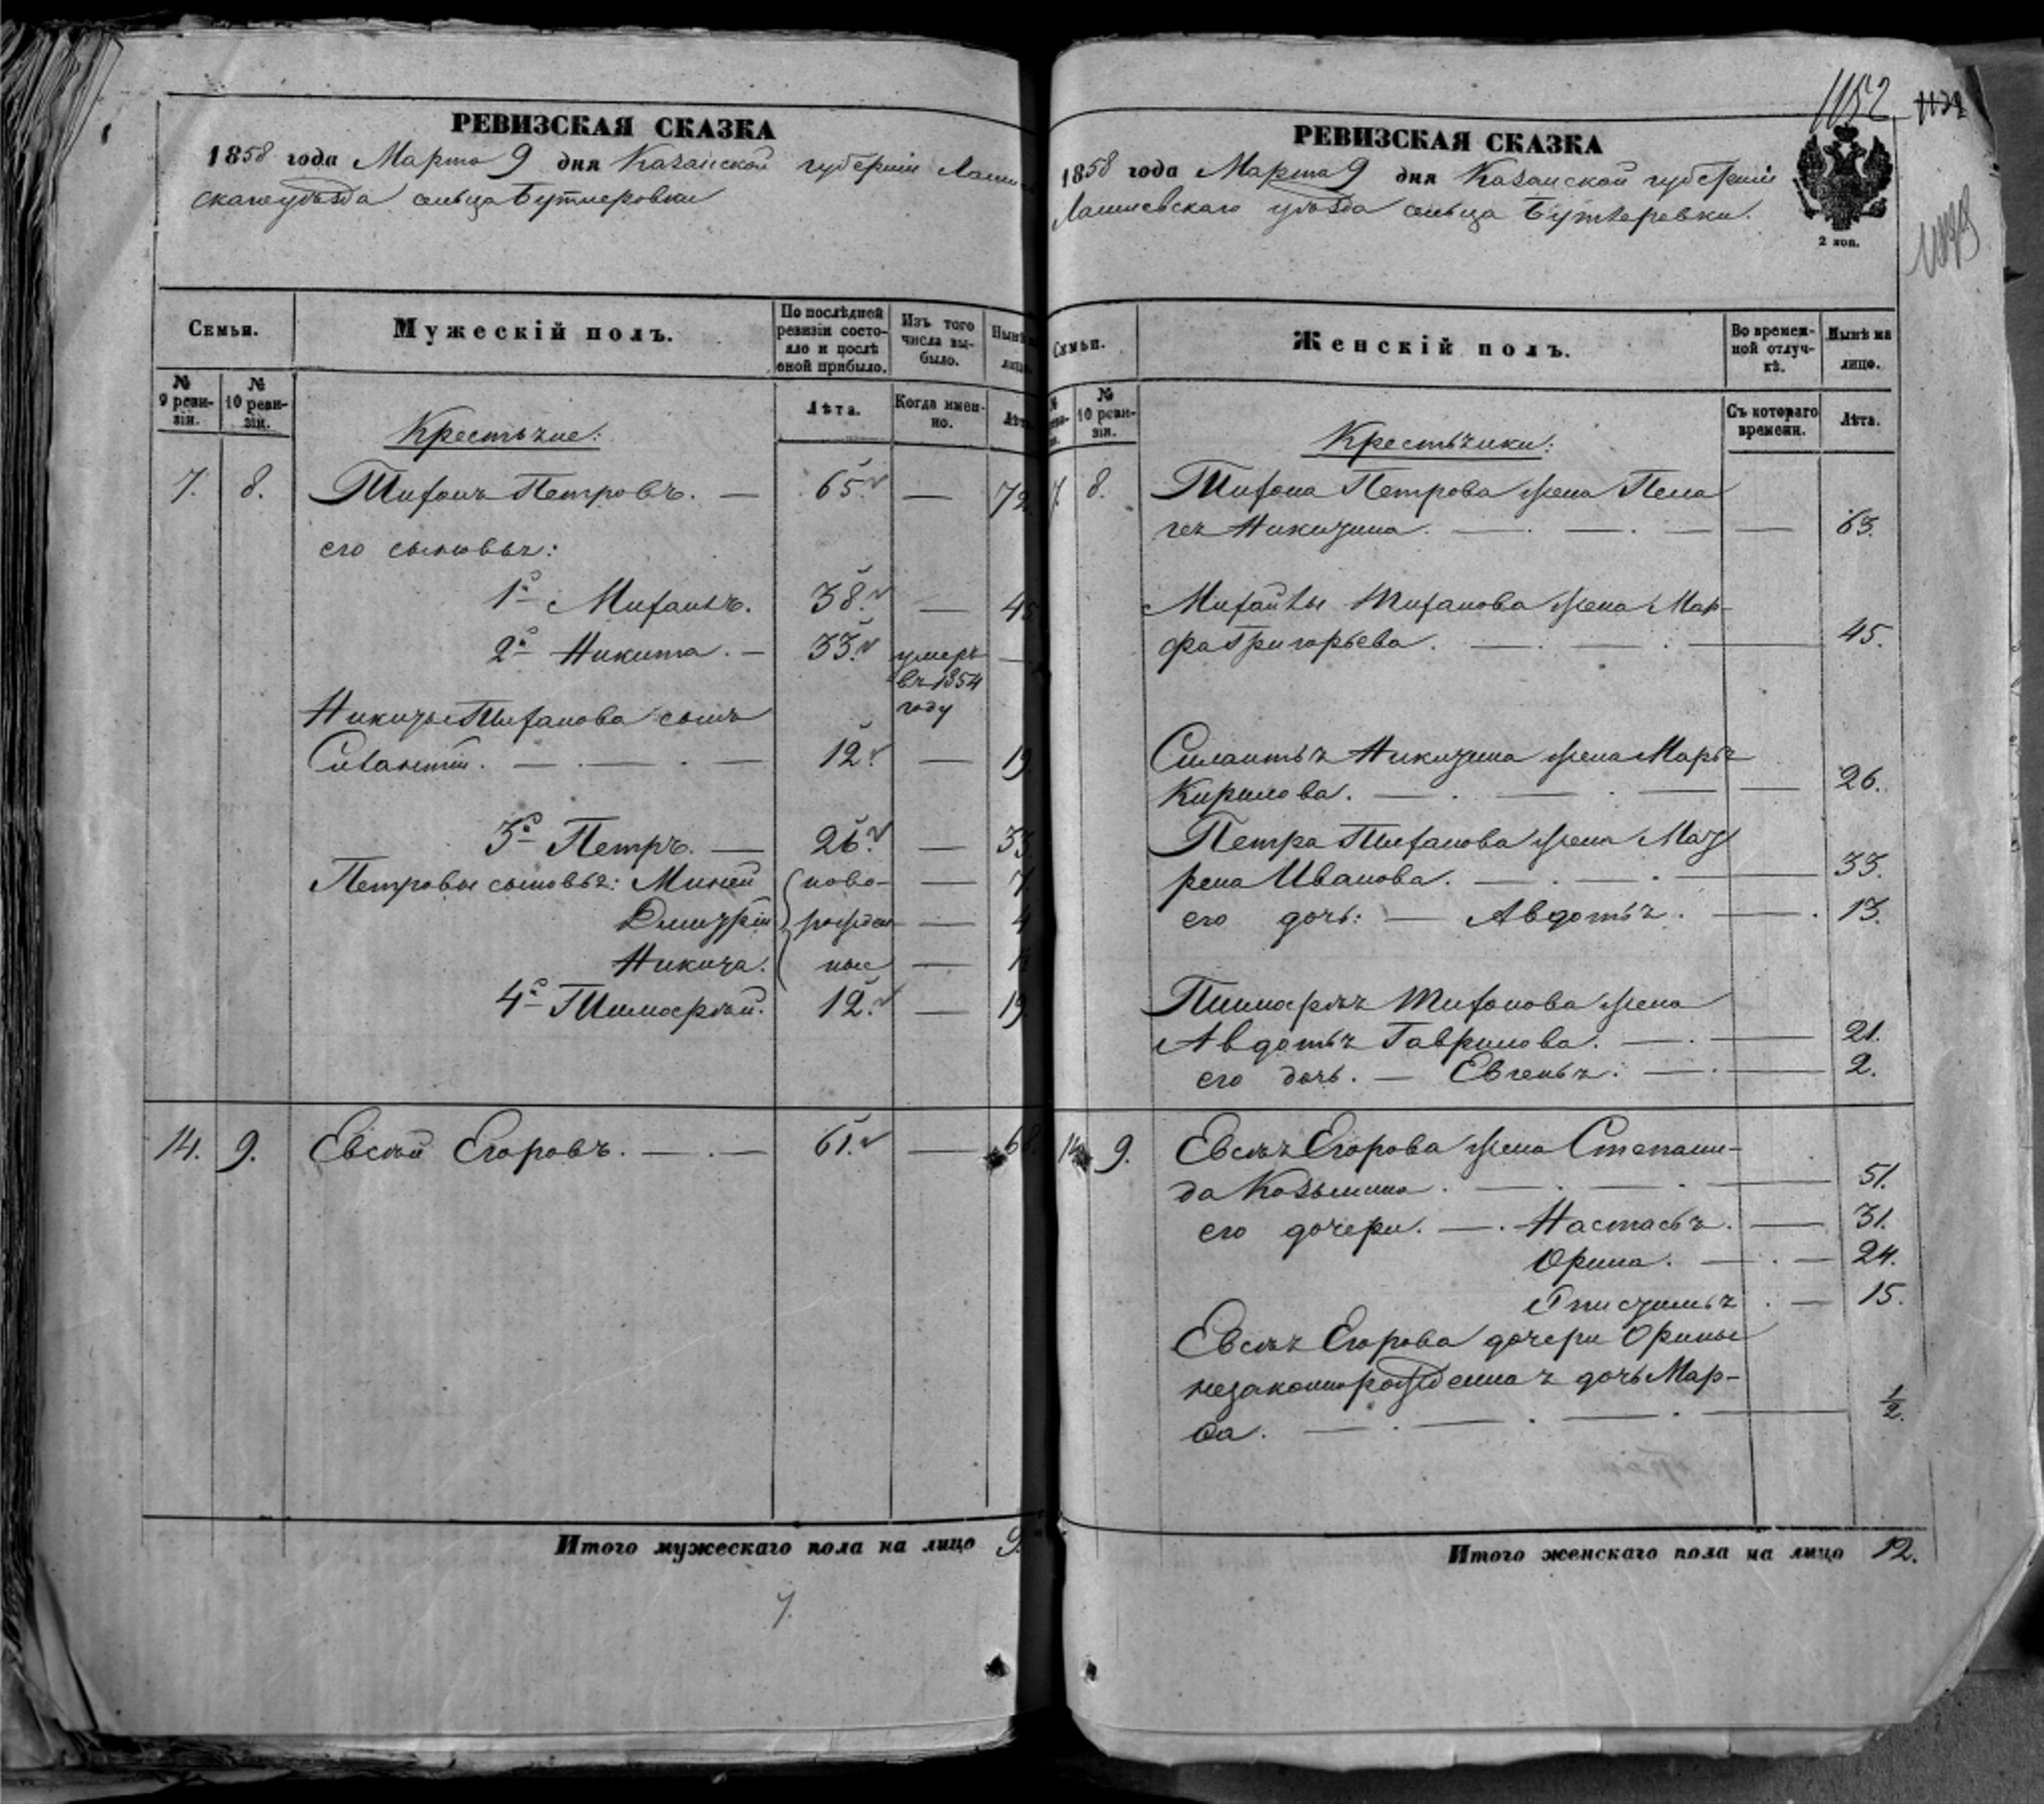 РЕВИЗСКАЯ СКАЗКА
1858 года Марта 9 дня Казанской губерніи Лаишев
скаго уѣзда сельца Бутлеровки
Семьи.
Мужескій полъ.
По послѣдней ревизіи состояло и послѣ оной прибыло.
Изъ того числа выбыло.
Нынѣ на лицо.
№ 9 ревизіи.
№ 10 ревизіи.
Лѣта.
Когда именно.
Лѣта
Крестьяне:
7. 8. Тихонъ Петровъ. — 65. — 72
его сыновья:
1й Михаилъ. 38. — 45
2й Никита. — 33. умеръ —
въ 1854
году
Никиты Тихонова сынъ
Силантій. — 12. — 19.
3й Петръ. — 26. — 33.
Петровы сыновья: Миней ново- — 7.
Дмитрій рожден — 4
Никита. ные —
4й Тимофѣй. 12. — 19.
14. 9. Евсѣй Егоровъ. — 61. — 68.
Итого мужескаго пола на лицо 9.
7.
1152
РЕВИЗСКАЯ СКАЗКА
1858 года Марта 9 дня Казанской губерніи
Лаишевскаго уѣзда сельца Бутлеровки.
2 коп.
Семьи.
Женскій полъ.
Во временной отлучкѣ.
Нынѣ на лицо.
№ 10 ревизіи.
Съ котораго времени.
Лѣта.
Крестьянки:
7. 8. Тихона Петрова жена Пела
гея Никитина. — 63.
Михайлы Тихонова жена Мар-
фа Григорьева. — 45.
Силантья Никитина жена Марья
Кирилова. — 26.
Петра Тихонова жена Мав
рена Иванова. — 33.
его дочь: — Авдотья. — 13.
Тимофѣя Тихонова жена
Авдотья Гаврилова. — 21.
его дочь. — Евгенья. — 2.
14. 9. Евсѣя Егорова жена Степани-
да Козьмина. — 51.
его дочери. — Настасья. — 31.
Орина. — 24.
— 15.
Евсѣя Егорова дочери Орины
незаконнорожденная дочь Мар-
фа. — 1/2.
Итого женскаго пола на лицо 12.